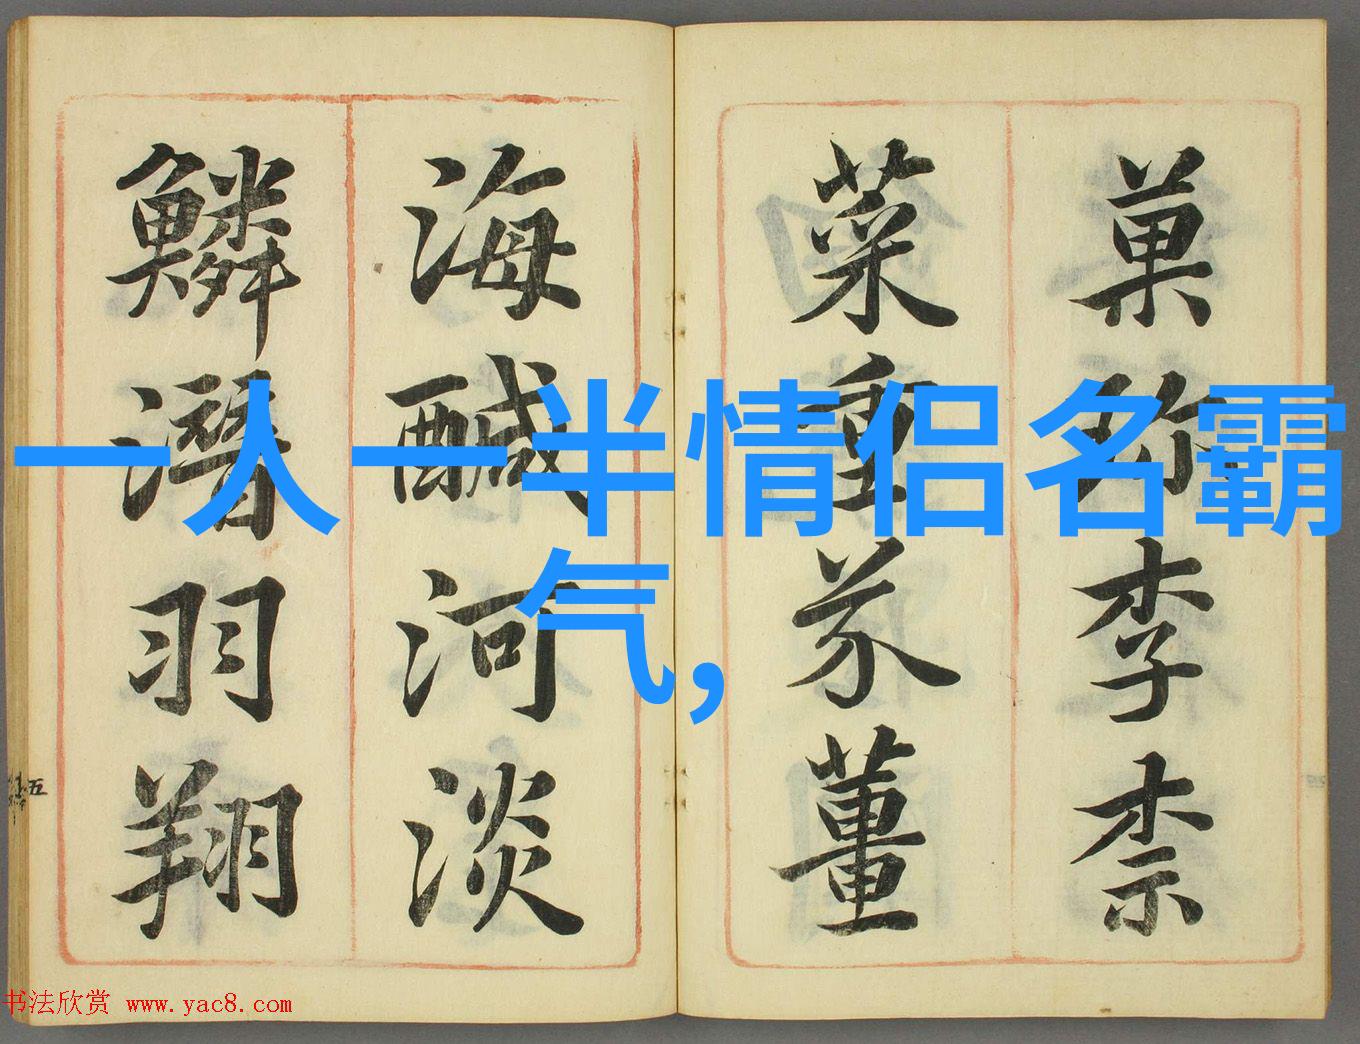 菓珎李柰
菜重芥薑
海醎河淡
鱗潛羽翔
一人一半情侣名霸
气,
五
书法欣赏 www.yac8.com